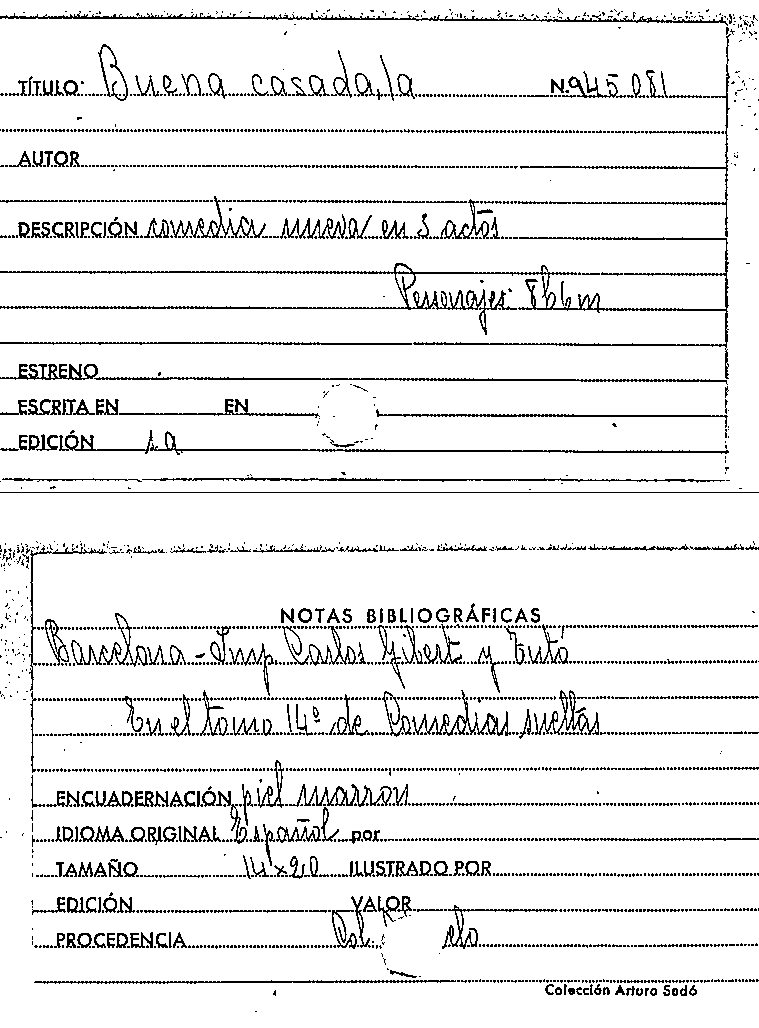 TÍTULO: Buena casada, la N. 945 081
AUTOR
DESCRIPCIÓN comedia nueva en 3 actos
Personajes: 8h 6m
ESTRENO
ESCRITA EN EN
EDICIÓN 1a
NOTAS BIBLIOGRÁFICAS
Barcelona - Imp Carlos Gibert y Tutó
En el tomo 14º de Comedias sueltas
ENCUADERNACIÓN piel marron
IDIOMA ORIGINAL Español por
TAMAÑO 14 x 20 ILUSTRADO POR
EDICIÓN VALOR
PROCEDENCIA Col.
Colección Arturo Sedó